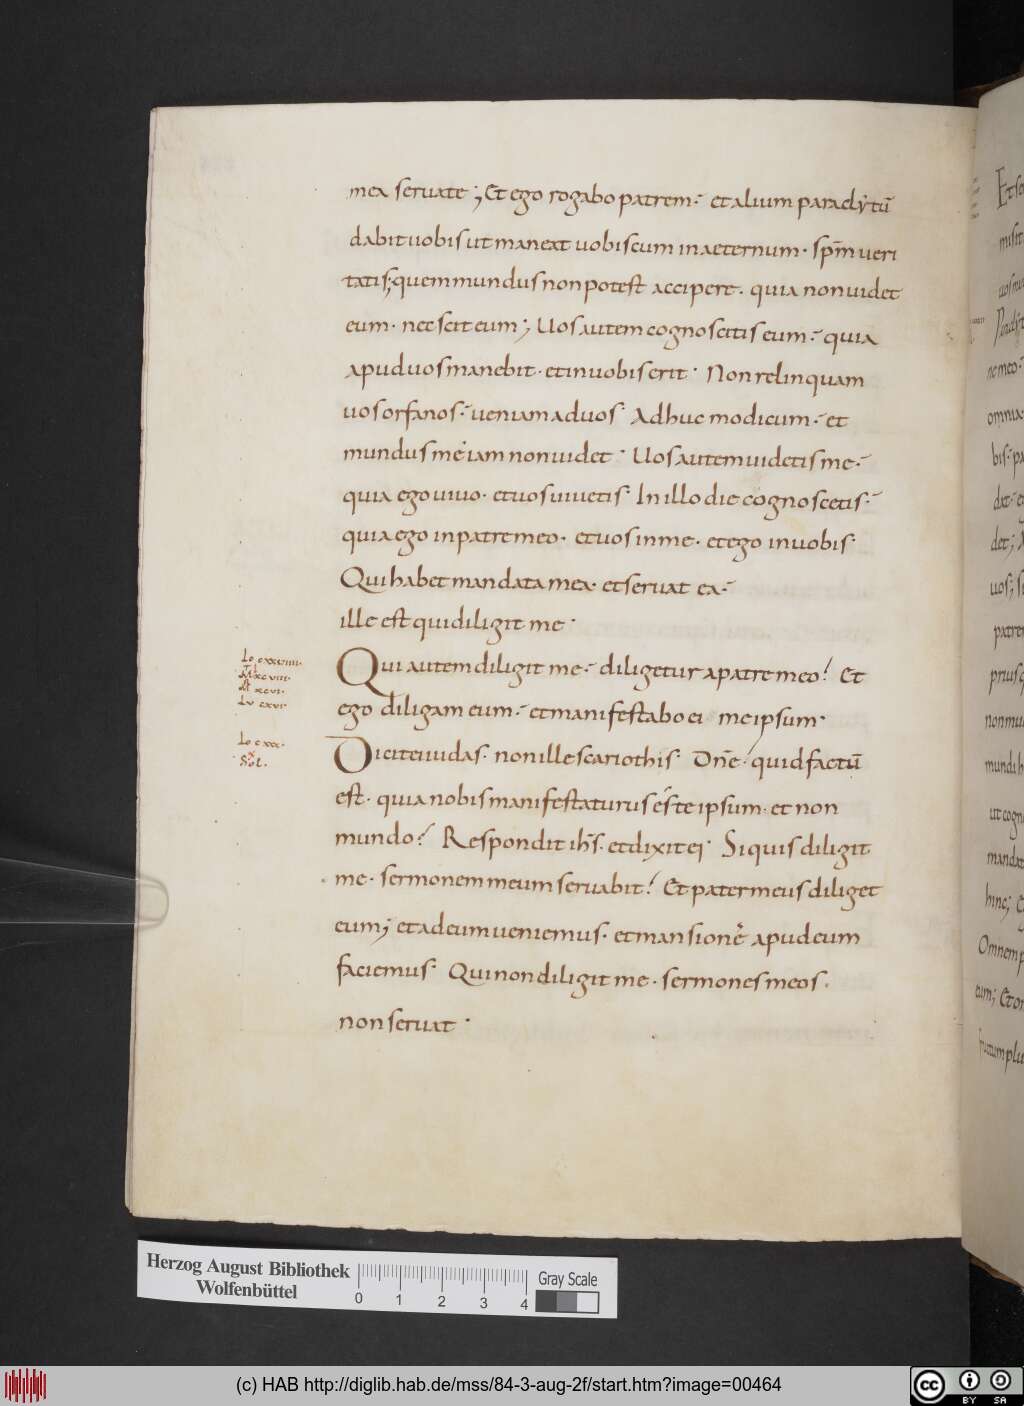 mea seruate ; Et ego rogabo patrem · et alium paraclytū
dabit uobis ut maneat uobiscum in aeternum · spm̄ ueri
tatis ; quem mundus non potest accipere . quia non uidet
eum · nec scit eum ; Uos autem cognoscitis eum · quia
apud uos manebit · et in uobis erit · Non relinquam
uos orfanos · ueniam ad uos · Adhuc modicum · et
mundus me iam non uidet · Uos autem uidetis me ·
quia ego uiuo · et uos uiuetis · In illo die cognoscetis ·
quia ego in patre meo · et uos in me · et ego in uobis ·
Qui habet mandata mea · et seruat ea ·
ille est qui diligit me ·
Qui autem diligit me · diligetur a patre meo ! Et
ego diligam eum · et manifestabo ei meipsum ·
Dicit ei iudas · non ille scariothis · Dn̄e · quid factū
est · quia nobis manifestaturus és te ipsum · et non
mundo ? Respondit ih̄s · et dixit ei · Si quis diligit
me · sermonem meum seruabit ! Et pater meus diliget
eum ; et ad eum ueniemus · et mansionē apud eum
faciemus · Qui non diligit me · sermones meos ·
non seruat ·
Io cxxviiii·
Mt xcviii·
xcvi·
Lu cxvi
Io cxxx·
x
Sol.
Herzog August Bibliothek
Wolfenbüttel
0 1 2 3 4
Gray Scale
(c) HAB http://diglib.hab.de/mss/84-3-aug-2f/start.htm?image=00464
cc BY SA